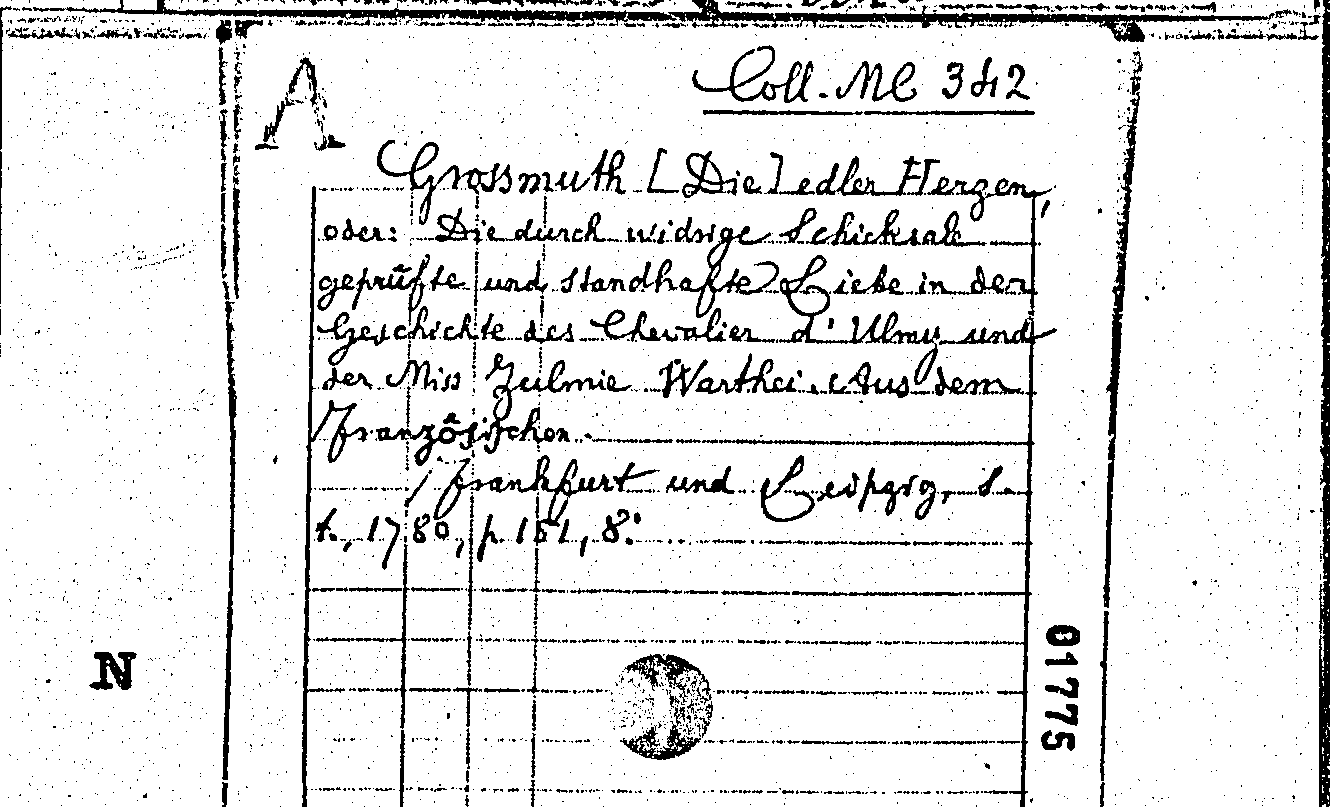 A
Coll. MC 342
Grossmuth [Die] edler Herzen,
oder: Die durch widrige Schicksale
geprüfte und standhafte Liebe in der
Geschichte des Chevalier d' Ulmy und
der Miss Zulmie Warthei. Aus dem
Französischen.
Frankfurt und Leipzig, s.
t., 1780, p. 151, 8.°
N
01775